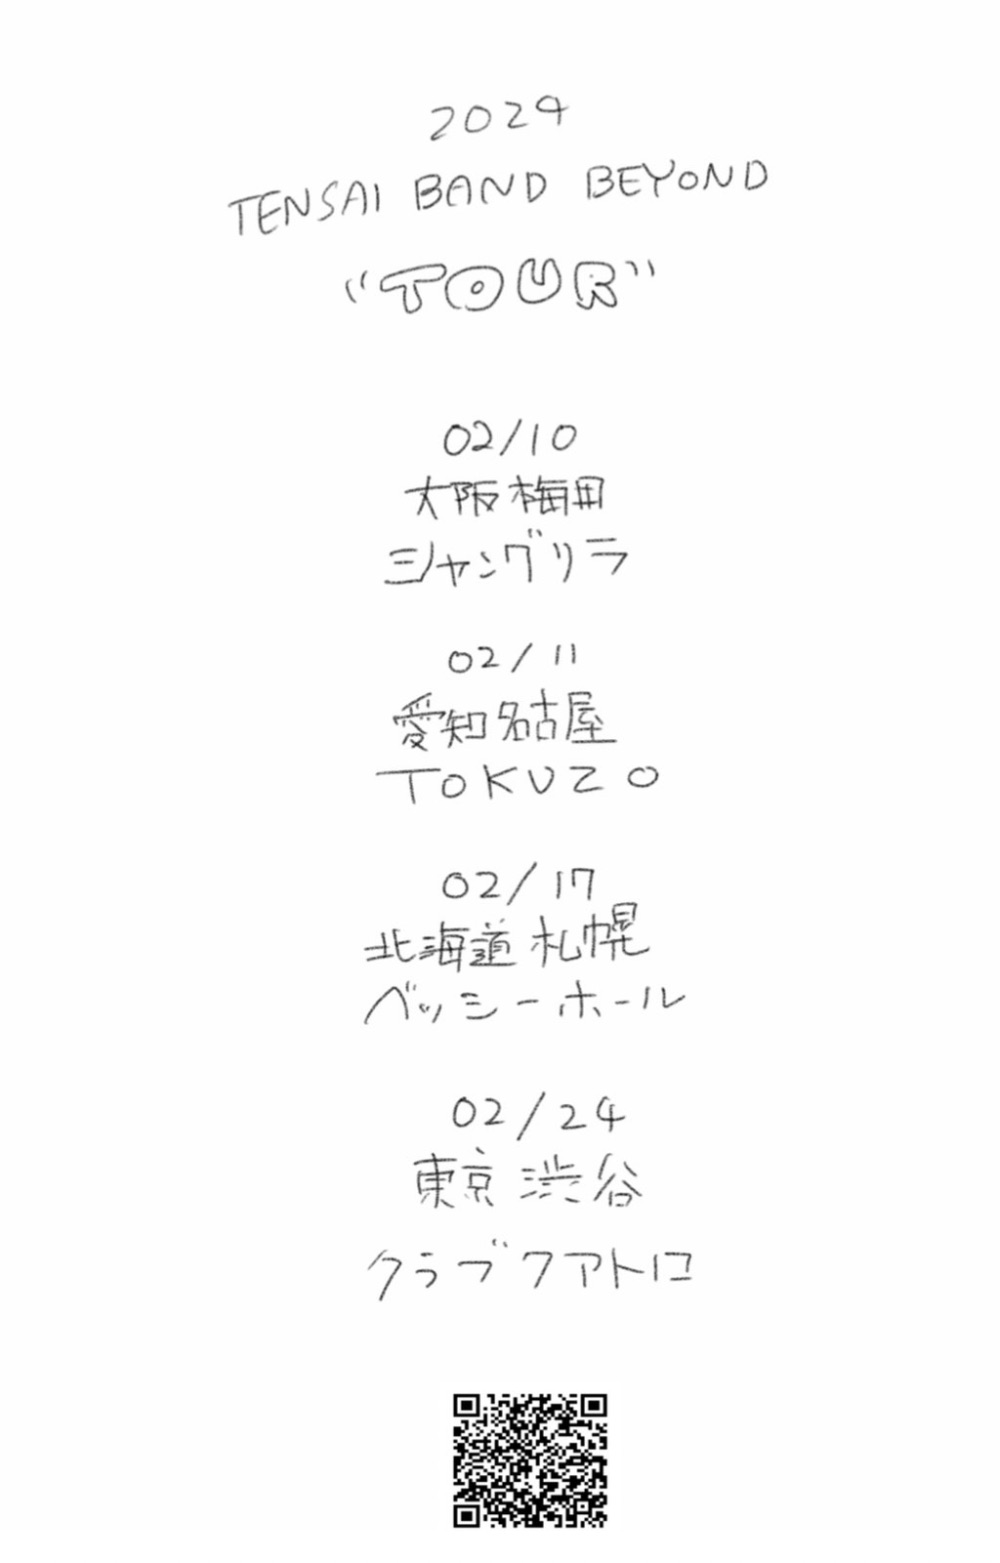 2024
TENSAI BAND BEYOND
“TOUR”
02/10
大阪梅田
シャングリラ
02/11
愛知名古屋
TOKUZO
02/17
北海道札幌
ベッシーホール
02/24
東京渋谷
クラブクアトロ